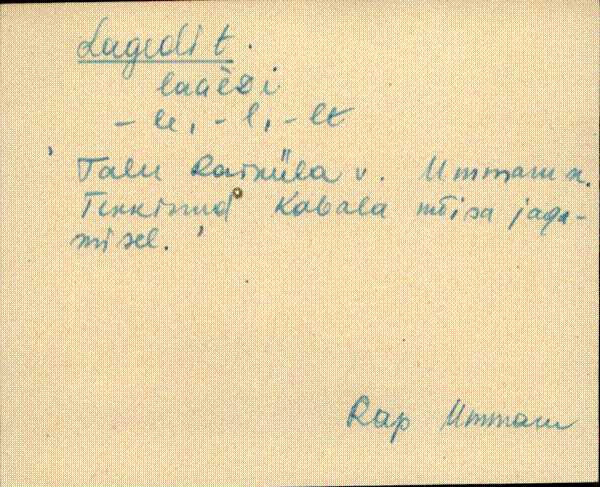 Lagedi t.
laaèdi
- le, - l, - lt
' Talu Raiküla v. Ummaru k.
Tekkinud Kabala mõisa jaga-
misel. '
Rap Ummaru